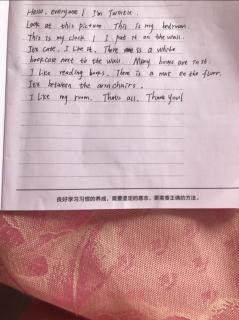 Hello, everyone! I'm Twinkle.
Look at this picture. This is my bedroom.
This is my clock! I put it on the wall.
Its cute, I like it. There is a whole
bookcase next to the wall. Many books are in it.
I like reading books. There is a mat on the floor.
Its between the armchairs.
I like my room. Thats all. Thank you!
良好学习习惯的养成，需要坚定的意志，更需要正确的方法。